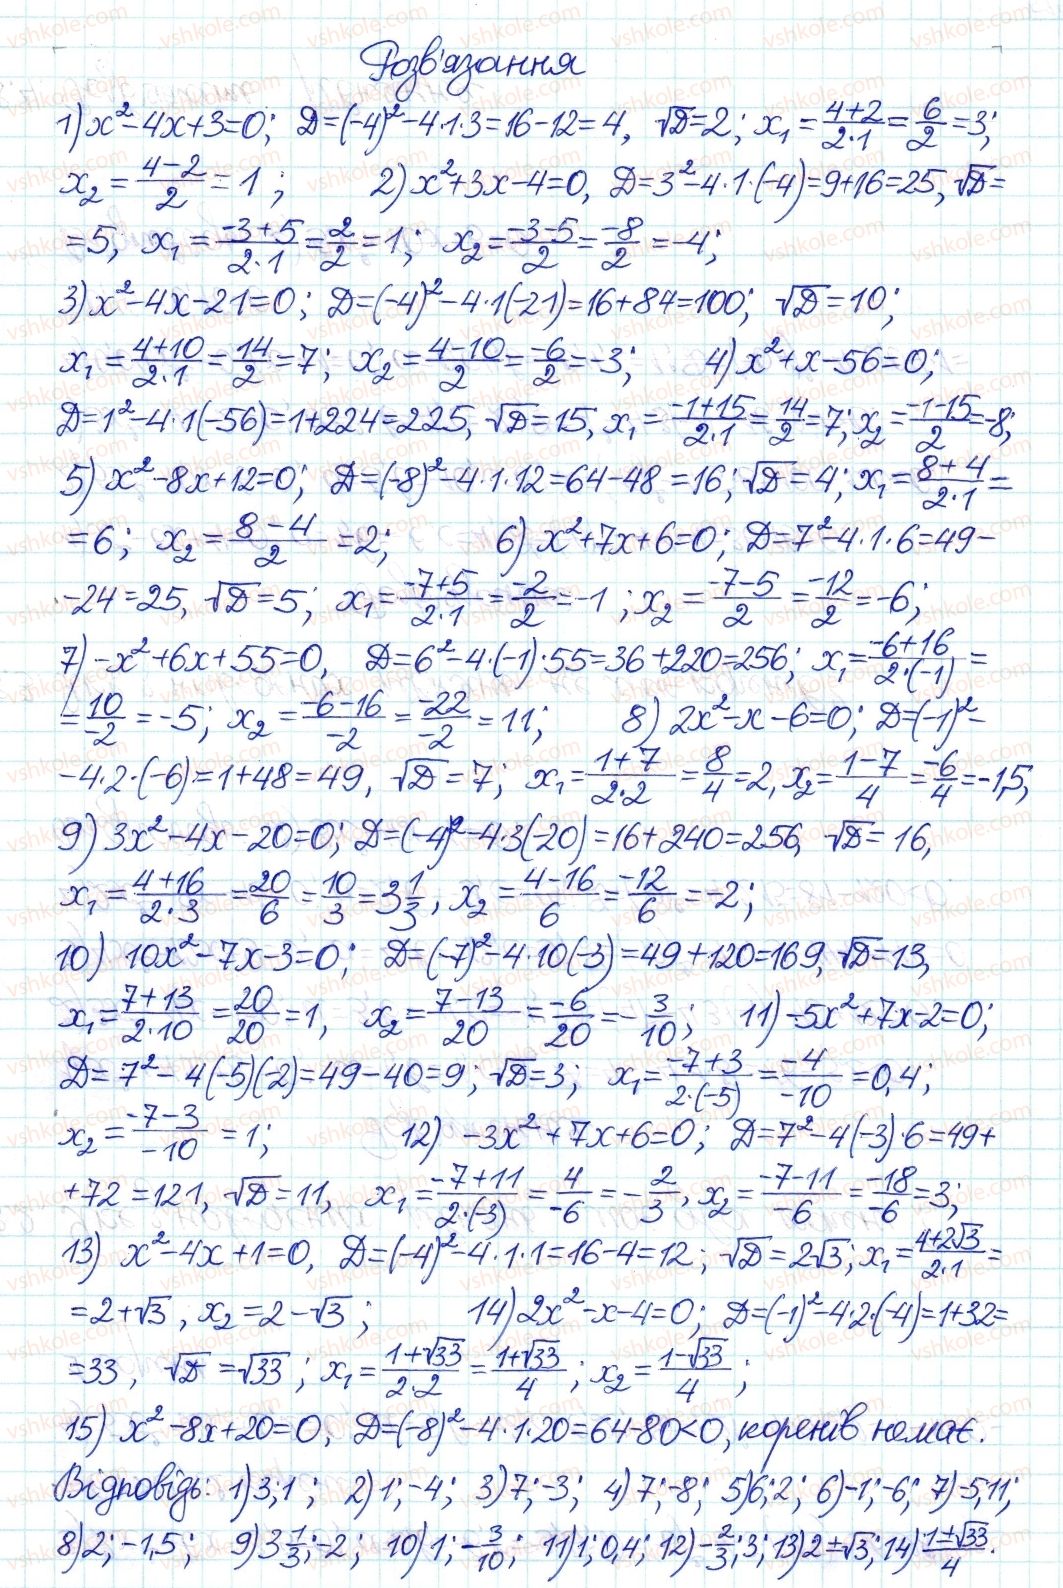 Розв'язання
1) x²-4x+3=0; D=(-4)²-4·1·3=16-12=4, √D=2; x₁=(4+2)/(2·1)=6/2=3;
x₂=(4-2)/2=1; 2) x²+3x-4=0, D=3²-4·1·(-4)=9+16=25, √D=
=5; x₁=(-3+5)/(2·1)=2/2=1; x₂=(-3-5)/2=-8/2=-4;
3) x²-4x-21=0; D=(-4)²-4·1(-21)=16+84=100; √D=10;
x₁=(4+10)/(2·1)=14/2=7; x₂=(4-10)/2=-6/2=-3; 4) x²+x-56=0;
D=1²-4·1(-56)=1+224=225, √D=15, x₁=(-1+15)/(2·1)=14/2=7; x₂=(-1-15)/2=-8;
5) x²-8x+12=0; D=(-8)²-4·1·12=64-48=16; √D=4; x₁=(8+4)/(2·1)=
=6; x₂=(8-4)/2=2; 6) x²+7x+6=0; D=7²-4·1·6=49-
-24=25, √D=5; x₁=(-7+5)/(2·1)=-2/2=-1; x₂=(-7-5)/2=-12/2=-6;
7) -x²+6x+55=0, D=6²-4·(-1)·55=36+220=256; x₁=(-6+16)/(2·(-1))=
=10/-2=-5; x₂=(-6-16)/-2=-22/-2=11; 8) 2x²-x-6=0; D=(-1)²-
-4·2·(-6)=1+48=49, √D=7; x₁=(1+7)/(2·2)=8/4=2, x₂=(1-7)/4=-6/4=-1,5,
9) 3x²-4x-20=0; D=(-4)²-4·3(-20)=16+240=256, √D=16,
x₁=(4+16)/(2·3)=20/6=10/3=3 1/3, x₂=(4-16)/6=-12/6=-2;
10) 10x²-7x-3=0; D=(-7)²-4·10(-3)=49+120=169, √D=13,
x₁=(7+13)/(2·10)=20/20=1, x₂=(7-13)/20=-6/20=-3/10; 11) -5x²+7x-2=0;
D=7²-4(-5)(-2)=49-40=9; √D=3; x₁=(-7+3)/(2·(-5))=-4/-10=0,4;
x₂=(-7-3)/-10=1; 12) -3x²+7x+6=0; D=7²-4(-3)·6=49+
+72=121, √D=11, x₁=(-7+11)/(2·(-3))=4/-6=-2/3, x₂=(-7-11)/-6=-18/-6=3;
13) x²-4x+1=0, D=(-4)²-4·1·1=16-4=12; √D=2√3; x₁=(4+2√3)/(2·1)=
=2+√3, x₂=2-√3; 14) 2x²-x-4=0; D=(-1)²-4·2·(-4)=1+32=
=33, √D=√33; x₁=(1+√33)/(2·2)=(1+√33)/4; x₂=(1-√33)/4;
15) x²-8x+20=0, D=(-8)²-4·1·20=64-80<0, коренів немає.
Відповідь: 1) 3; 1; 2) 1; -4; 3) 7; -3; 4) 7; -8; 5) 6; 2; 6) -1; -6; 7) -5; 11;
8) 2; -1,5; 9) 3 1/3; -2; 10) 1; -3/10; 11) 1; 0,4; 12) -2/3; 3; 13) 2±√3; 14) (1±√33)/4.